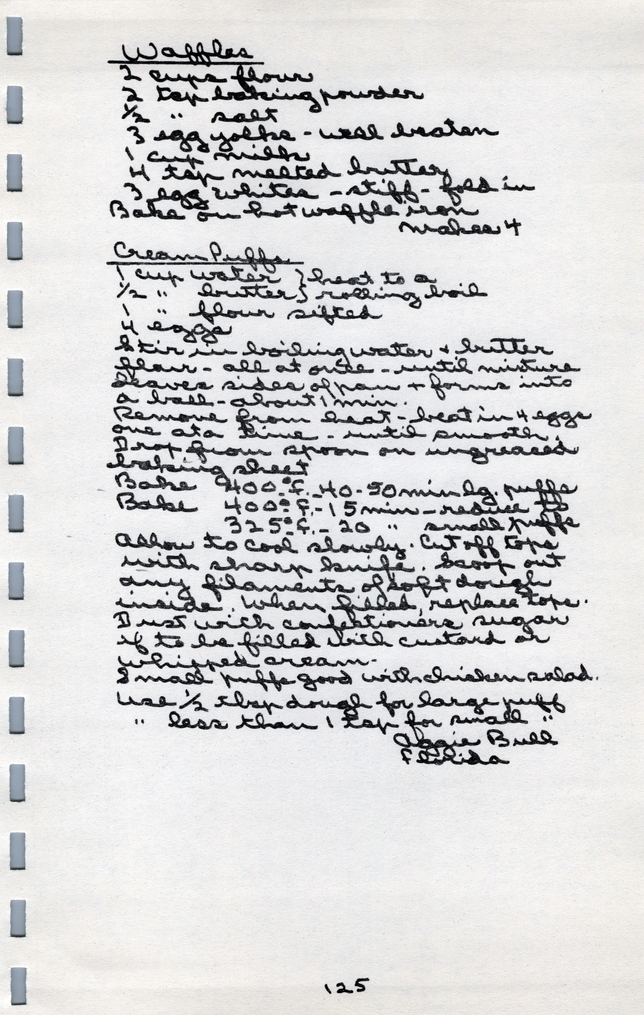 Waffles
2 cups flour
2 tsp baking powder
1/2 " salt
3 egg yolks - well beaten
1 cup milk
4 tsp melted butter
3 egg whites - stiff - fold in
Bake on hot waffle iron
makes 4
Cream Puffs
1 cup water } heat to a
1/2 " butter } rolling boil
1 " flour sifted
4 eggs
Stir in boiling water + butter
flour - all at once - until mixture
leaves sides of pan + forms into
a ball - about 1 min.
Remove from heat - beat in 4 eggs
one at a time - until smooth.
Drop from spoon on ungreased
baking sheet
Bake 400°F. - 40-50 min lg. puffs
Bake 400°F. - 15 min - reduce to
325°F. - 20 " small puffs
Allow to cool slowly. Cut off tops
with sharp knife. Scoop out
any filaments of soft dough
inside. When filled, replace tops.
Dust with confectioners sugar
if to be filled with custard or
whipped cream.
Small puffs good with chicken salad.
Use 1/2 tbsp dough for large puff
" less than 1 tsp for small "
Aggie Bull
Florida
125